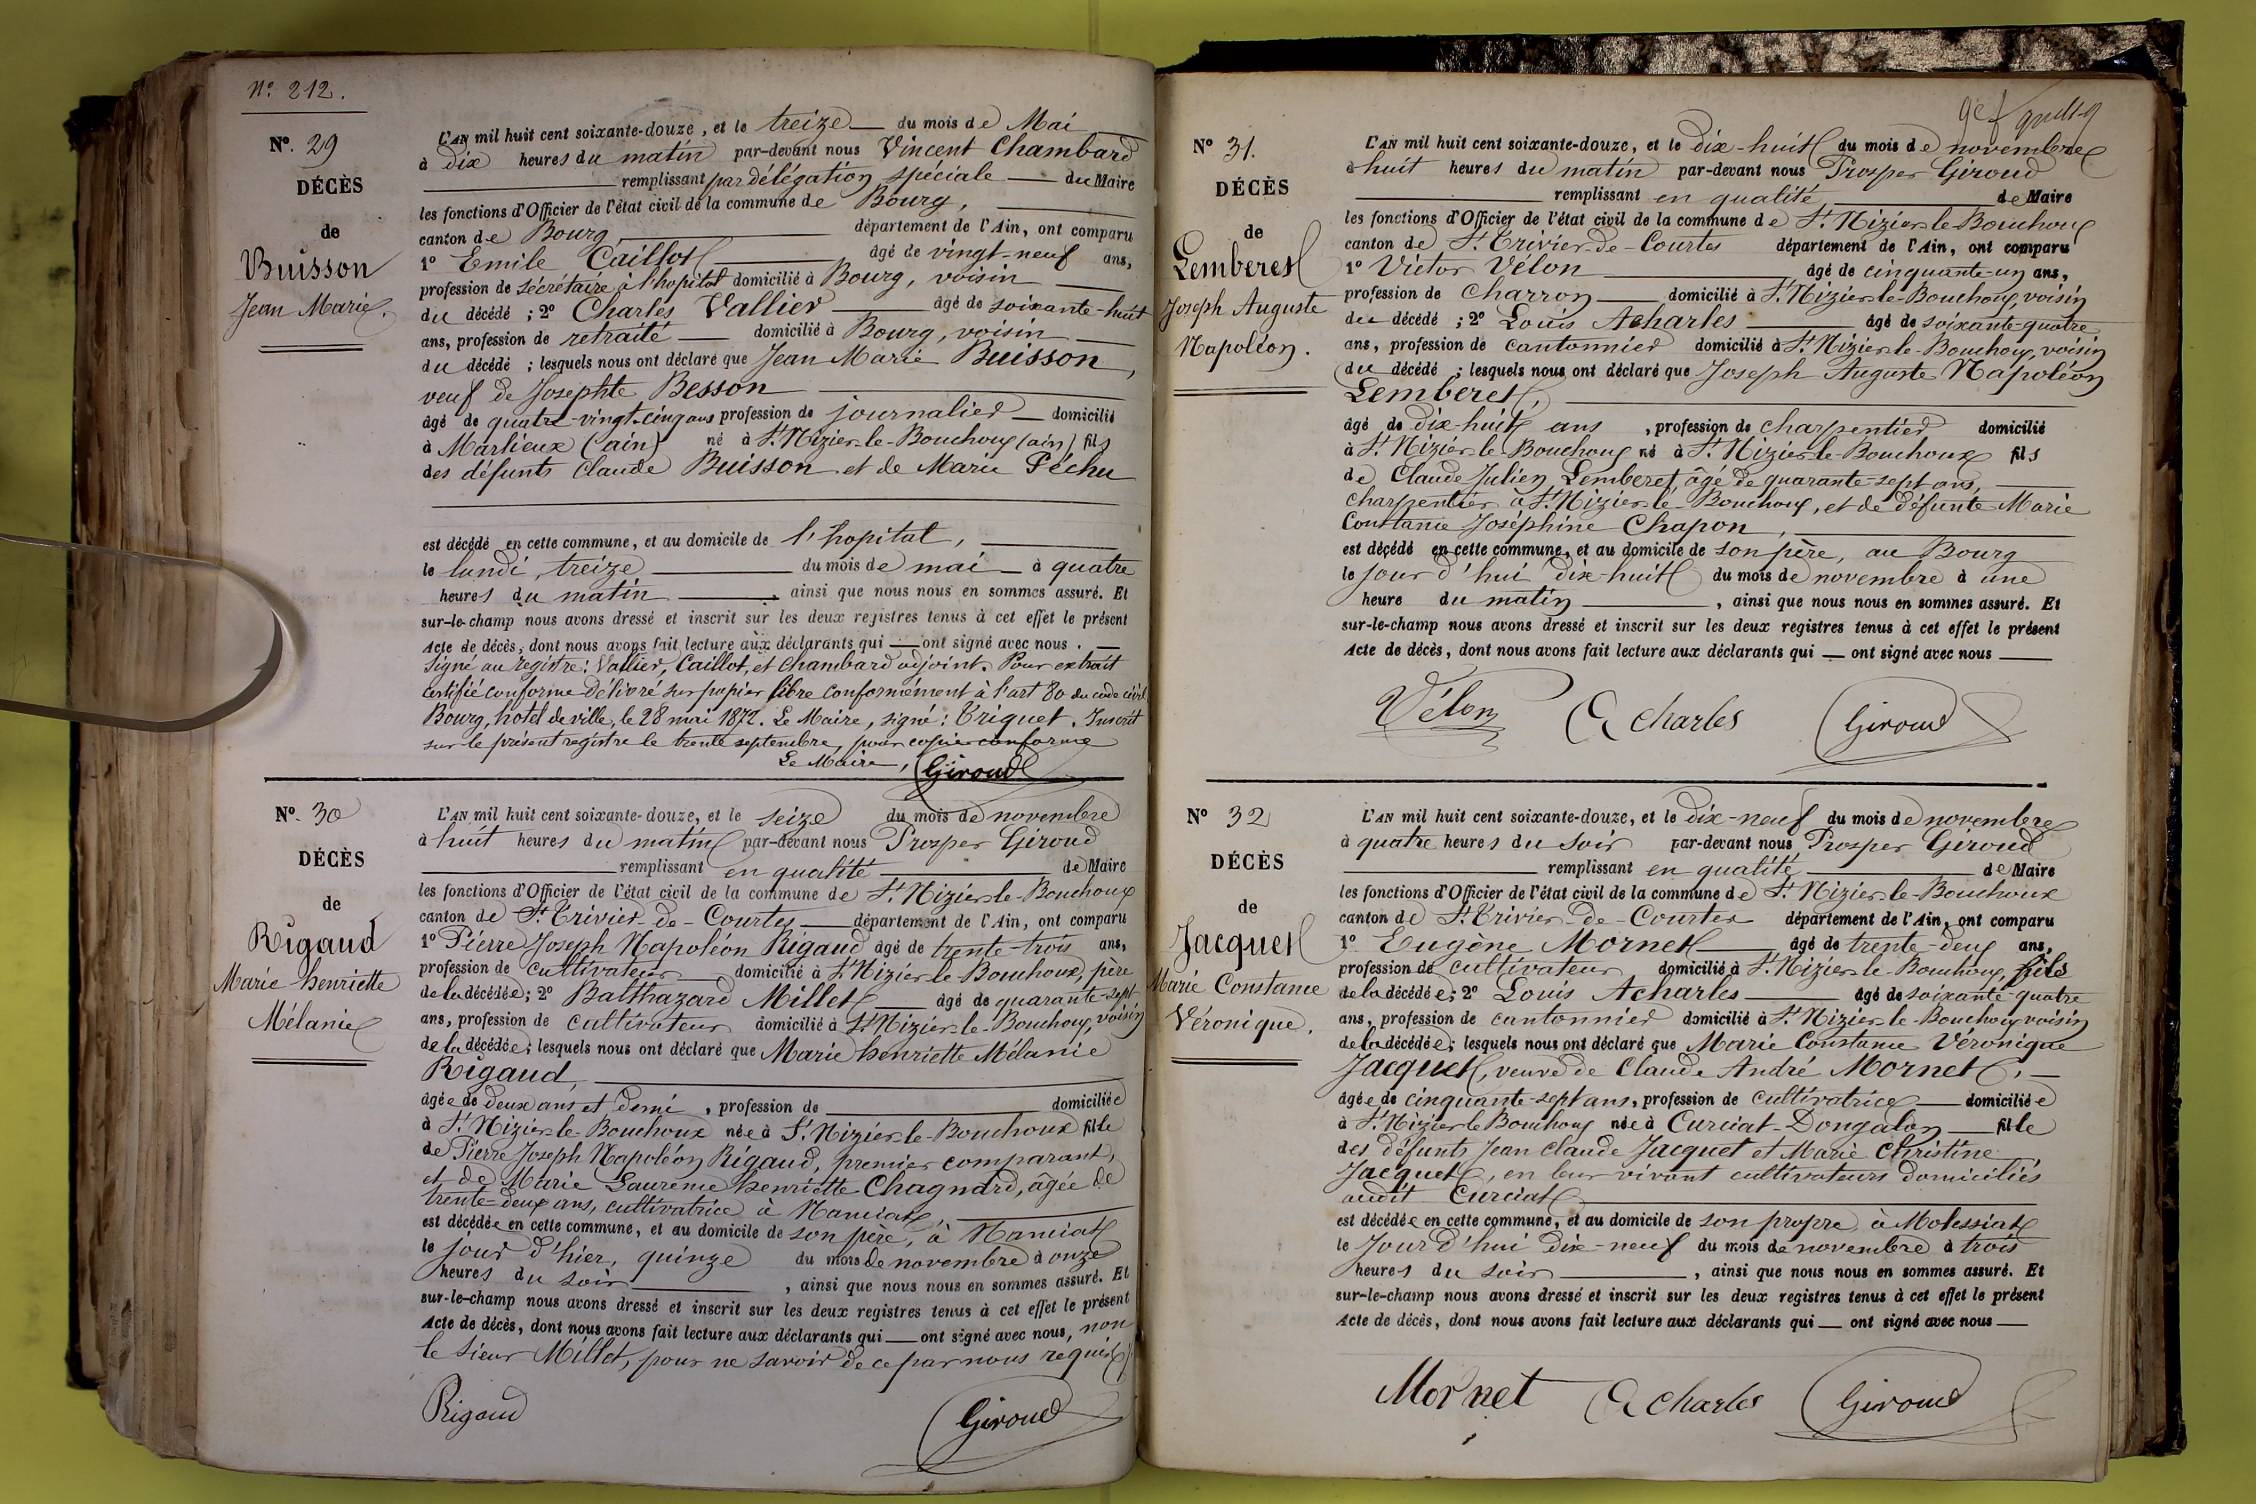 N.º 212.
Nº. 29
DÉCÈS
de
Buisson
Jean Marie.
L'AN mil huit cent soixante-douze, et le treize du mois de Mai
à dix heures du matin par-devant nous Vincent Chambard
remplissant par délégation spéciale du Maire
les fonctions d'Officier de l'état civil de la commune de Bourg,
canton de Bourg département de l'Ain, ont comparu
1º Emile Caillot âgé de vingt-neuf ans,
profession de sécrétaire à l'hopital domicilié à Bourg, voisin
du décédé ; 2º Charles Vallier âgé de soixante-huit
ans, profession de retraité domicilié à Bourg, voisin
du décédé ; lesquels nous ont déclaré que Jean Marie Buisson,
veuf de Josephte Besson
âgé de quatre-vingt-cinq ans profession de journalier domicilié
à Marlieux (ain) né à St. Nizier-le-Bouchoux (ain) fils
des défunts Claude Buisson et de Marie Péchu
est décédé en cette commune, et au domicile de l'hopital,
le lundi, treize du mois de mai à quatre
heures du matin, ainsi que nous nous en sommes assuré. Et
sur-le-champ nous avons dressé et inscrit sur les deux registres tenus à cet effet le présent
Acte de décès, dont nous avons fait lecture aux déclarants qui ont signé avec nous.
Signé au registre: Vallier, Caillot, et Chambard adjoint. Pour extrait
certifié conforme délivré sur papier libre conformément à l'art 80 du code civil
Bourg, hotel de ville, le 28 mai 1872. Le Maire, signé: Triquet. Inscrit
sur le présent registre le trente septembre, pour copie conforme
Le Maire, Giroud
Nº. 30
DÉCÈS
de
Rigaud
Marie henriette
Mélanie
L'AN mil huit cent soixante-douze, et le seize du mois de novembre
à huit heures du matin par-devant nous Prosper Giroud
remplissant en qualité de Maire
les fonctions d'Officier de l'état civil de la commune de St. Nizier-le-Bouchoux
canton de St. Trivier-de-Courtes département de l'Ain, ont comparu
1º Pierre Joseph Napoléon Rigaud âgé de trente-trois ans,
profession de cultivateur domicilié à St. Nizier-le-Bouchoux, père
de la décédée; 2º Balthazard Millet âgé de quarante-sept
ans, profession de cultivateur domicilié à St. Nizier-le-Bouchoux, voisin
de la décédée; lesquels nous ont déclaré que Marie henriette Mélanie
Rigaud,
âgée de deux ans et demi, profession de domiciliée
à St. Nizier-le-Bouchoux née à St. Nizier-le-Bouchoux fille
de Pierre Joseph Napoléon Rigaud, premier comparant,
et de Marie Laurence henriette Chagnard, âgée de
trente-deux ans, cultivatrice à Manciat,
est décédée en cette commune, et au domicile de son père, à Manciat
le jour d'hier, quinze du mois de novembre à onze
heures du soir, ainsi que nous nous en sommes assuré. Et
sur-le-champ nous avons dressé et inscrit sur les deux registres tenus à cet effet le présent
Acte de décès, dont nous avons fait lecture aux déclarants qui ont signé avec nous, non
le sieur Millet, pour ne savoir de ce par nous requis
Rigaud Giroud
Nº 31.
DÉCÈS
de
Lemberet
Joseph Auguste
Napoléon.
L'AN mil huit cent soixante-douze, et le dix-huit du mois de novembre
à huit heures du matin par-devant nous Prosper Giroud
remplissant en qualité de Maire
les fonctions d'Officier de l'état civil de la commune de St. Nizier-le-Bouchoux
canton de St. Trivier-de-Courtes département de l'Ain, ont comparu
1º Victor Vélon âgé de cinquante-un ans,
profession de charron domicilié à St. Nizier-le-Bouchoux, voisin
du décédé ; 2º Louis Acharles âgé de soixante-quatre
ans, profession de cantonnier domicilié à St. Nizier-le-Bouchoux, voisin
du décédé ; lesquels nous ont déclaré que Joseph Auguste Napoléon
Lemberet,
âgé de dix-huit ans, profession de charpentier domicilié
à St. Nizier-le-Bouchoux né à St. Nizier-le-Bouchoux fils
de Claude Julien Lemberet, âgé de quarante-sept ans,
charpentier à St. Nizier-le-Bouchoux, et de défunte Marie
Constance Joséphine Chapon,
est décédé en cette commune, et au domicile de son père, au Bourg
le jour d'hui dix-huit du mois de novembre à une
heure du matin, ainsi que nous nous en sommes assuré. Et
sur-le-champ nous avons dressé et inscrit sur les deux registres tenus à cet effet le présent
Acte de décès, dont nous avons fait lecture aux déclarants qui ont signé avec nous
Vélon Acharles Giroud
Nº 32
DÉCÈS
de
Jacquet
Marie Constance
Véronique.
L'AN mil huit cent soixante-douze, et le dix-neuf du mois de novembre
à quatre heures du soir par-devant nous Prosper Giroud
remplissant en qualité de Maire
les fonctions d'Officier de l'état civil de la commune de St. Nizier-le-Bouchoux
canton de St. Trivier-de-Courtes département de l'Ain, ont comparu
1º Eugène Mornet âgé de trente-deux ans,
profession de cultivateur domicilié à St. Nizier-le-Bouchoux, fils
de la décédée; 2º Louis Acharles âgé de soixante-quatre
ans, profession de cantonnier domicilié à St. Nizier-le-Bouchoux voisin
de la décédée; lesquels nous ont déclaré que Marie Constance Véronique
Jacquet, veuve de Claude André Mornet,
âgée de cinquante-sept ans, profession de cultivatrice domiciliée
à St. Nizier le Bouchoux née à Curciat-Dongalon fille
des défunts Jean Claude Jacquet et Marie Christine
Jacquet, en leur vivant cultivateurs domiciliés
audit Curciat
est décédée en cette commune, et au domicile de son propre, à Molessiat
le jour d'hui dix-neuf du mois de novembre à trois
heures du soir, ainsi que nous nous en sommes assuré. Et
sur-le-champ nous avons dressé et inscrit sur les deux registres tenus à cet effet le présent
Acte de décès, dont nous avons fait lecture aux déclarants qui ont signé avec nous
Mornet Acharles Giroud